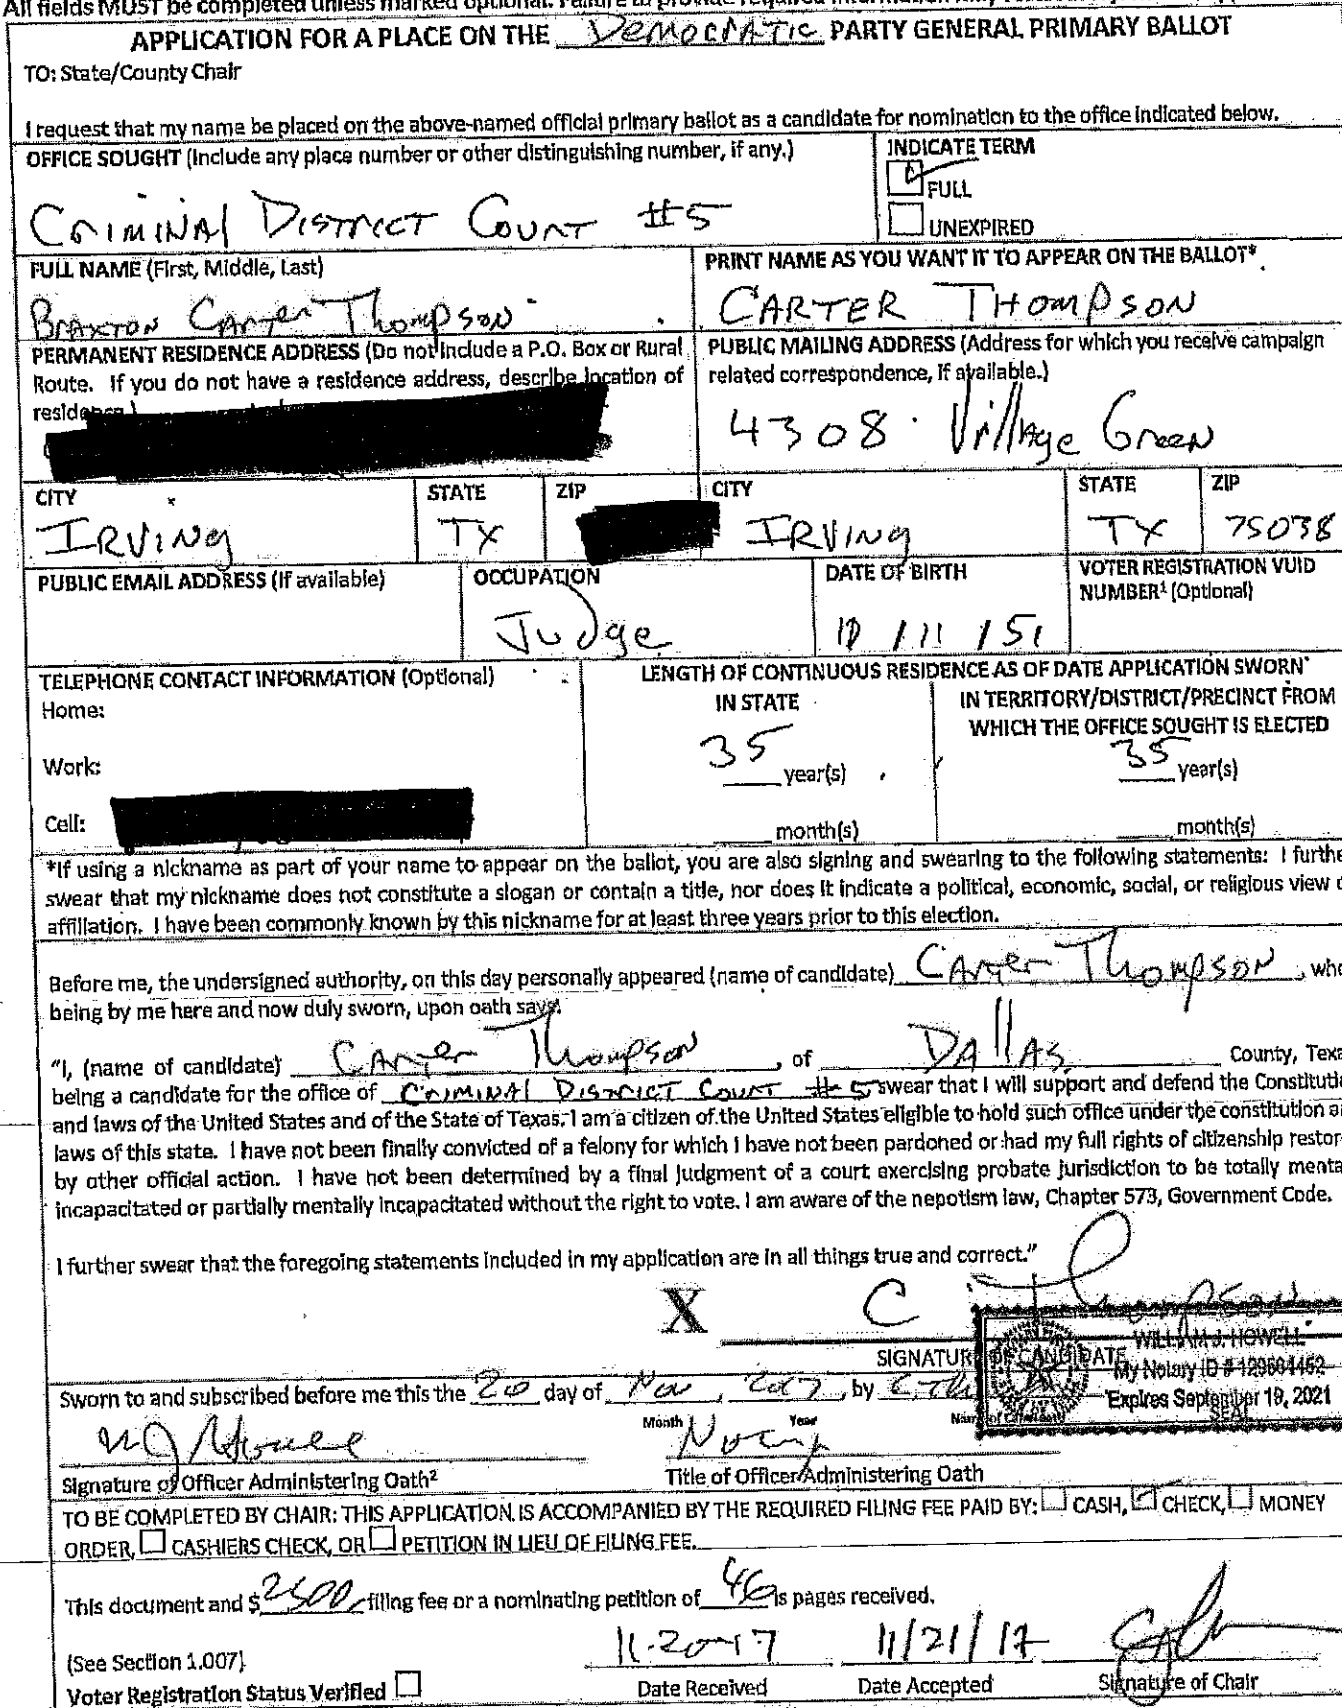 All fields MUST be completed unless marked optional.
APPLICATION FOR A PLACE ON THE Democratic PARTY GENERAL PRIMARY BALLOT
TO: State/County Chair
I request that my name be placed on the above-named official primary ballot as a candidate for nomination to the office indicated below.
OFFICE SOUGHT (Include any place number or other distinguishing number, if any.)
Criminal District Court #5
INDICATE TERM
FULL
UNEXPIRED
FULL NAME (First, Middle, Last)
Braxton Carter Thompson
PRINT NAME AS YOU WANT IT TO APPEAR ON THE BALLOT*
CARTER THOMPSON
PERMANENT RESIDENCE ADDRESS (Do not include a P.O. Box or Rural
Route. If you do not have a residence address, describe location of
residence.)
PUBLIC MAILING ADDRESS (Address for which you receive campaign
related correspondence, if available.)
4308 Village Green
CITY
IRVINg
STATE
TX
ZIP
CITY
IRVINg
STATE
TX
ZIP
75038
PUBLIC EMAIL ADDRESS (If available)
OCCUPATION
Judge
DATE OF BIRTH
/ 11 / 51
VOTER REGISTRATION VUID
NUMBER¹ (Optional)
TELEPHONE CONTACT INFORMATION (Optional)
Home:
Work:
Cell:
LENGTH OF CONTINUOUS RESIDENCE AS OF DATE APPLICATION SWORN
IN STATE
35 year(s)
month(s)
IN TERRITORY/DISTRICT/PRECINCT FROM
WHICH THE OFFICE SOUGHT IS ELECTED
35 year(s)
month(s)
*If using a nickname as part of your name to appear on the ballot, you are also signing and swearing to the following statements: I furthe
swear that my nickname does not constitute a slogan or contain a title, nor does it indicate a political, economic, social, or religious view o
affiliation. I have been commonly known by this nickname for at least three years prior to this election.
Before me, the undersigned authority, on this day personally appeared (name of candidate) Carter Thompson, who
being by me here and now duly sworn, upon oath says:
"I, (name of candidate) Carter Thompson, of Dallas County, Texa
being a candidate for the office of Criminal District Court #5 swear that I will support and defend the Constitutio
and laws of the United States and of the State of Texas. I am a citizen of the United States eligible to hold such office under the constitution a
laws of this state. I have not been finally convicted of a felony for which I have not been pardoned or had my full rights of citizenship restor
by other official action. I have not been determined by a final judgment of a court exercising probate jurisdiction to be totally menta
incapacitated or partially mentally incapacitated without the right to vote. I am aware of the nepotism law, Chapter 573, Government Code.
I further swear that the foregoing statements included in my application are in all things true and correct."
X C Thompson
SIGNATURE OF CANDIDATE
WILLIAM J. HOWELL
My Notary ID # 129604452
Expires September 19, 2021
SEAL
Sworn to and subscribed before me this the 20 day of Nov, 2017, by
Month Year Name of Candidate
WJ Howell
Notary
Signature of Officer Administering Oath²
Title of Officer Administering Oath
TO BE COMPLETED BY CHAIR: THIS APPLICATION IS ACCOMPANIED BY THE REQUIRED FILING FEE PAID BY: CASH, CHECK, MONEY
ORDER, CASHIERS CHECK, OR PETITION IN LIEU OF FILING FEE.
This document and $2500 filing fee or a nominating petition of 46 pages received.
(See Section 1.007)
11-20-17
11/21/17
Voter Registration Status Verified
Date Received
Date Accepted
Signature of Chair